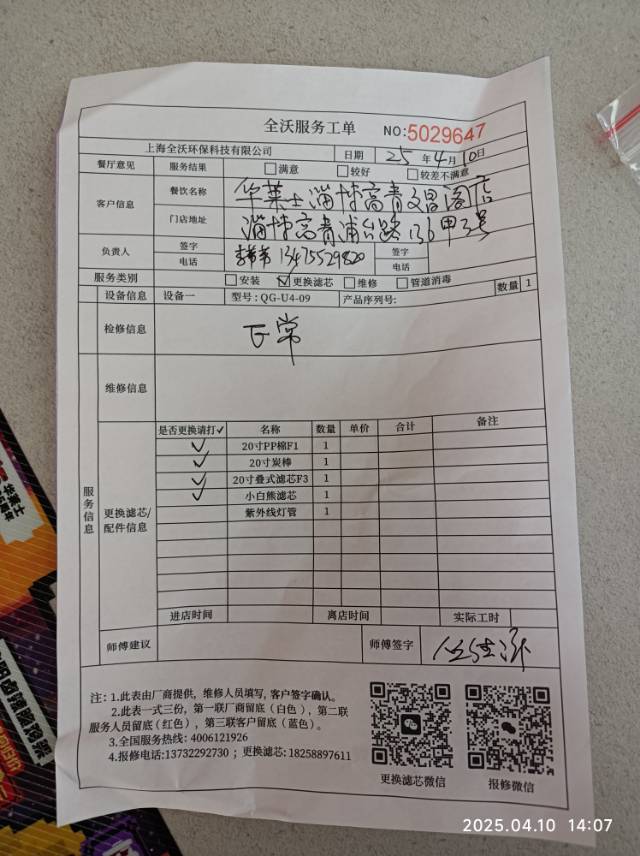 全沃服务工单 NO:5029647
上海全沃环保科技有限公司 日期 25年4月10日
餐厅意见 服务结果 □满意 □较好 □较差不满意
客户信息 餐饮名称 华莱士淄博高青文昌阁店
门店地址 淄博高青蒲台路136甲3号
负责人 签字 签字
电话 13475529820 电话
服务类别 □安装 ☑更换滤芯 □维修 □管道消毒 数量 1
设备信息 设备一 型号:QG-U4-09 产品序列号:
检修信息 正常
维修信息
服务信息
更换滤芯/配件信息
是否更换请打✓ 名称 数量 单价 合计 备注
✓ 20寸PP棉F1 1
✓ 20寸炭棒 1
✓ 20寸叠式滤芯F3 1
✓ 小白熊滤芯 1
紫外线灯管 1
进店时间 离店时间 实际工时
师傅建议 师傅签字
注:1.此表由厂商提供,维修人员填写,客户签字确认。
2.此表一式三份,第一联厂商留底(白色),第二联
服务人员留底(红色),第三联客户留底(蓝色)。
3.全国服务热线:4006121926
4.报修电话:13732292730;更换滤芯:18258897611
更换滤芯微信 报修微信
2025.04.10 14:07